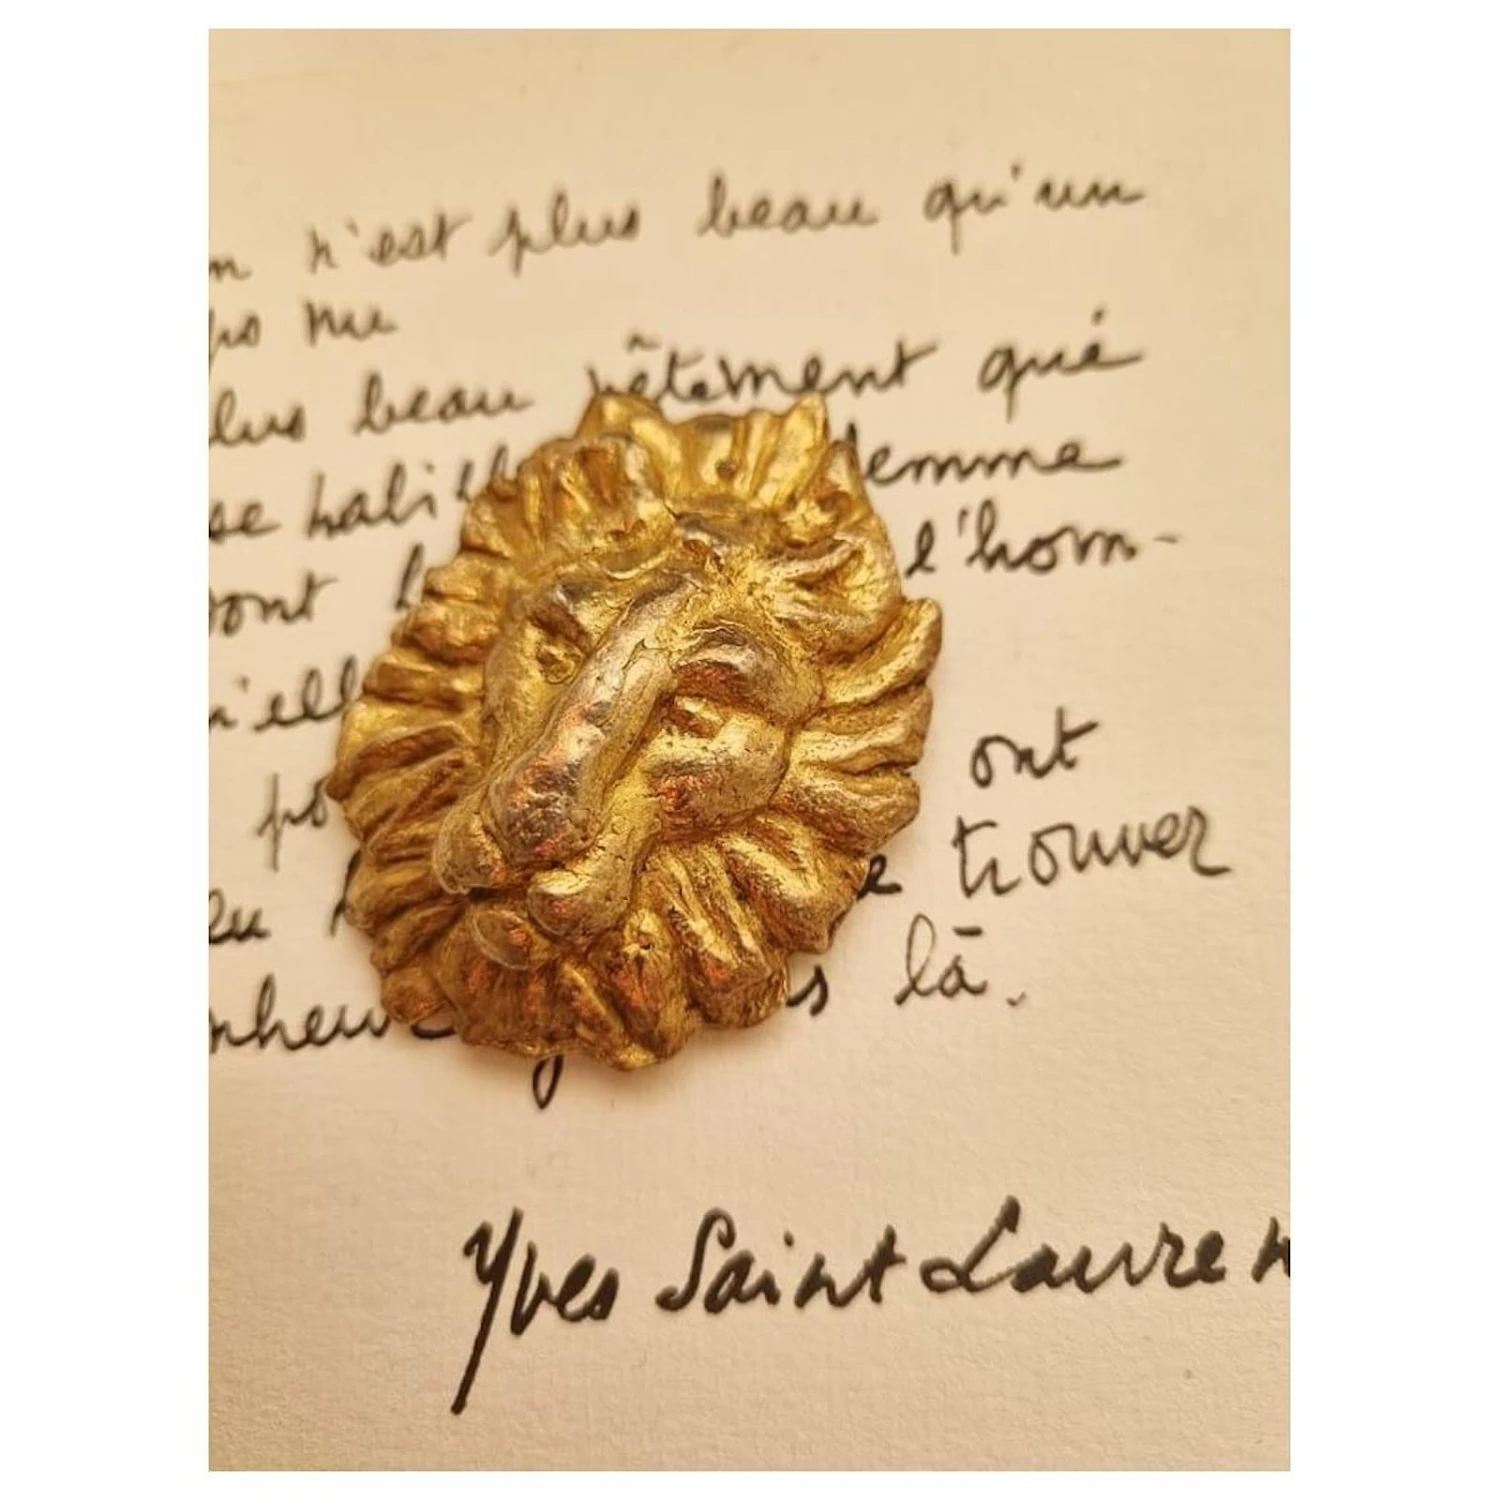 n n'est plus beau qu'un
ps nu
lus beau vêtement qui
se habill femme
sont l'hom-
'ell
po ont
eu e trouver
nheur s là.
Yves Saint Lauren